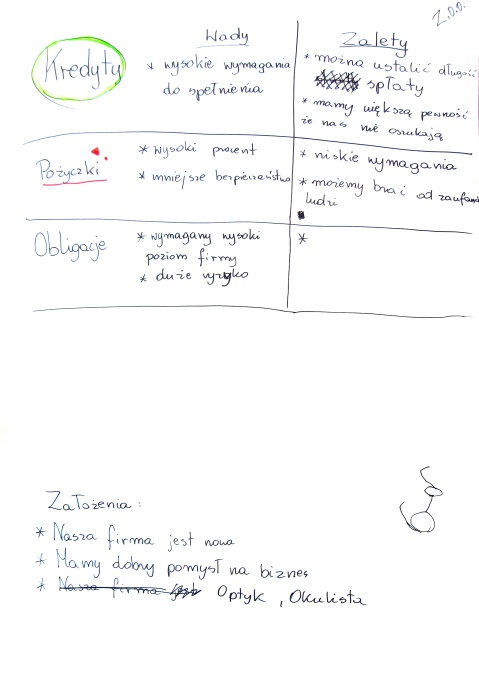 Z.O.O.
Wady
Zalety
Kredyty
* wysokie wymagania
do spełnienia
* można ustalić długość
spłaty
* mamy większą pewność
że nas nie oszukają
Pożyczki
* wysoki procent
* mniejsze bezpieczeństwo
* niskie wymagania
* możemy brać od zaufanych
ludzi
Obligacje
* wymagany wysoki
poziom firmy
* duże ryzyko
*
Założenia:
* Nasza firma jest nowa
* Mamy dobry pomysł na biznes
* Nasza firma jest Optyk, Okulista